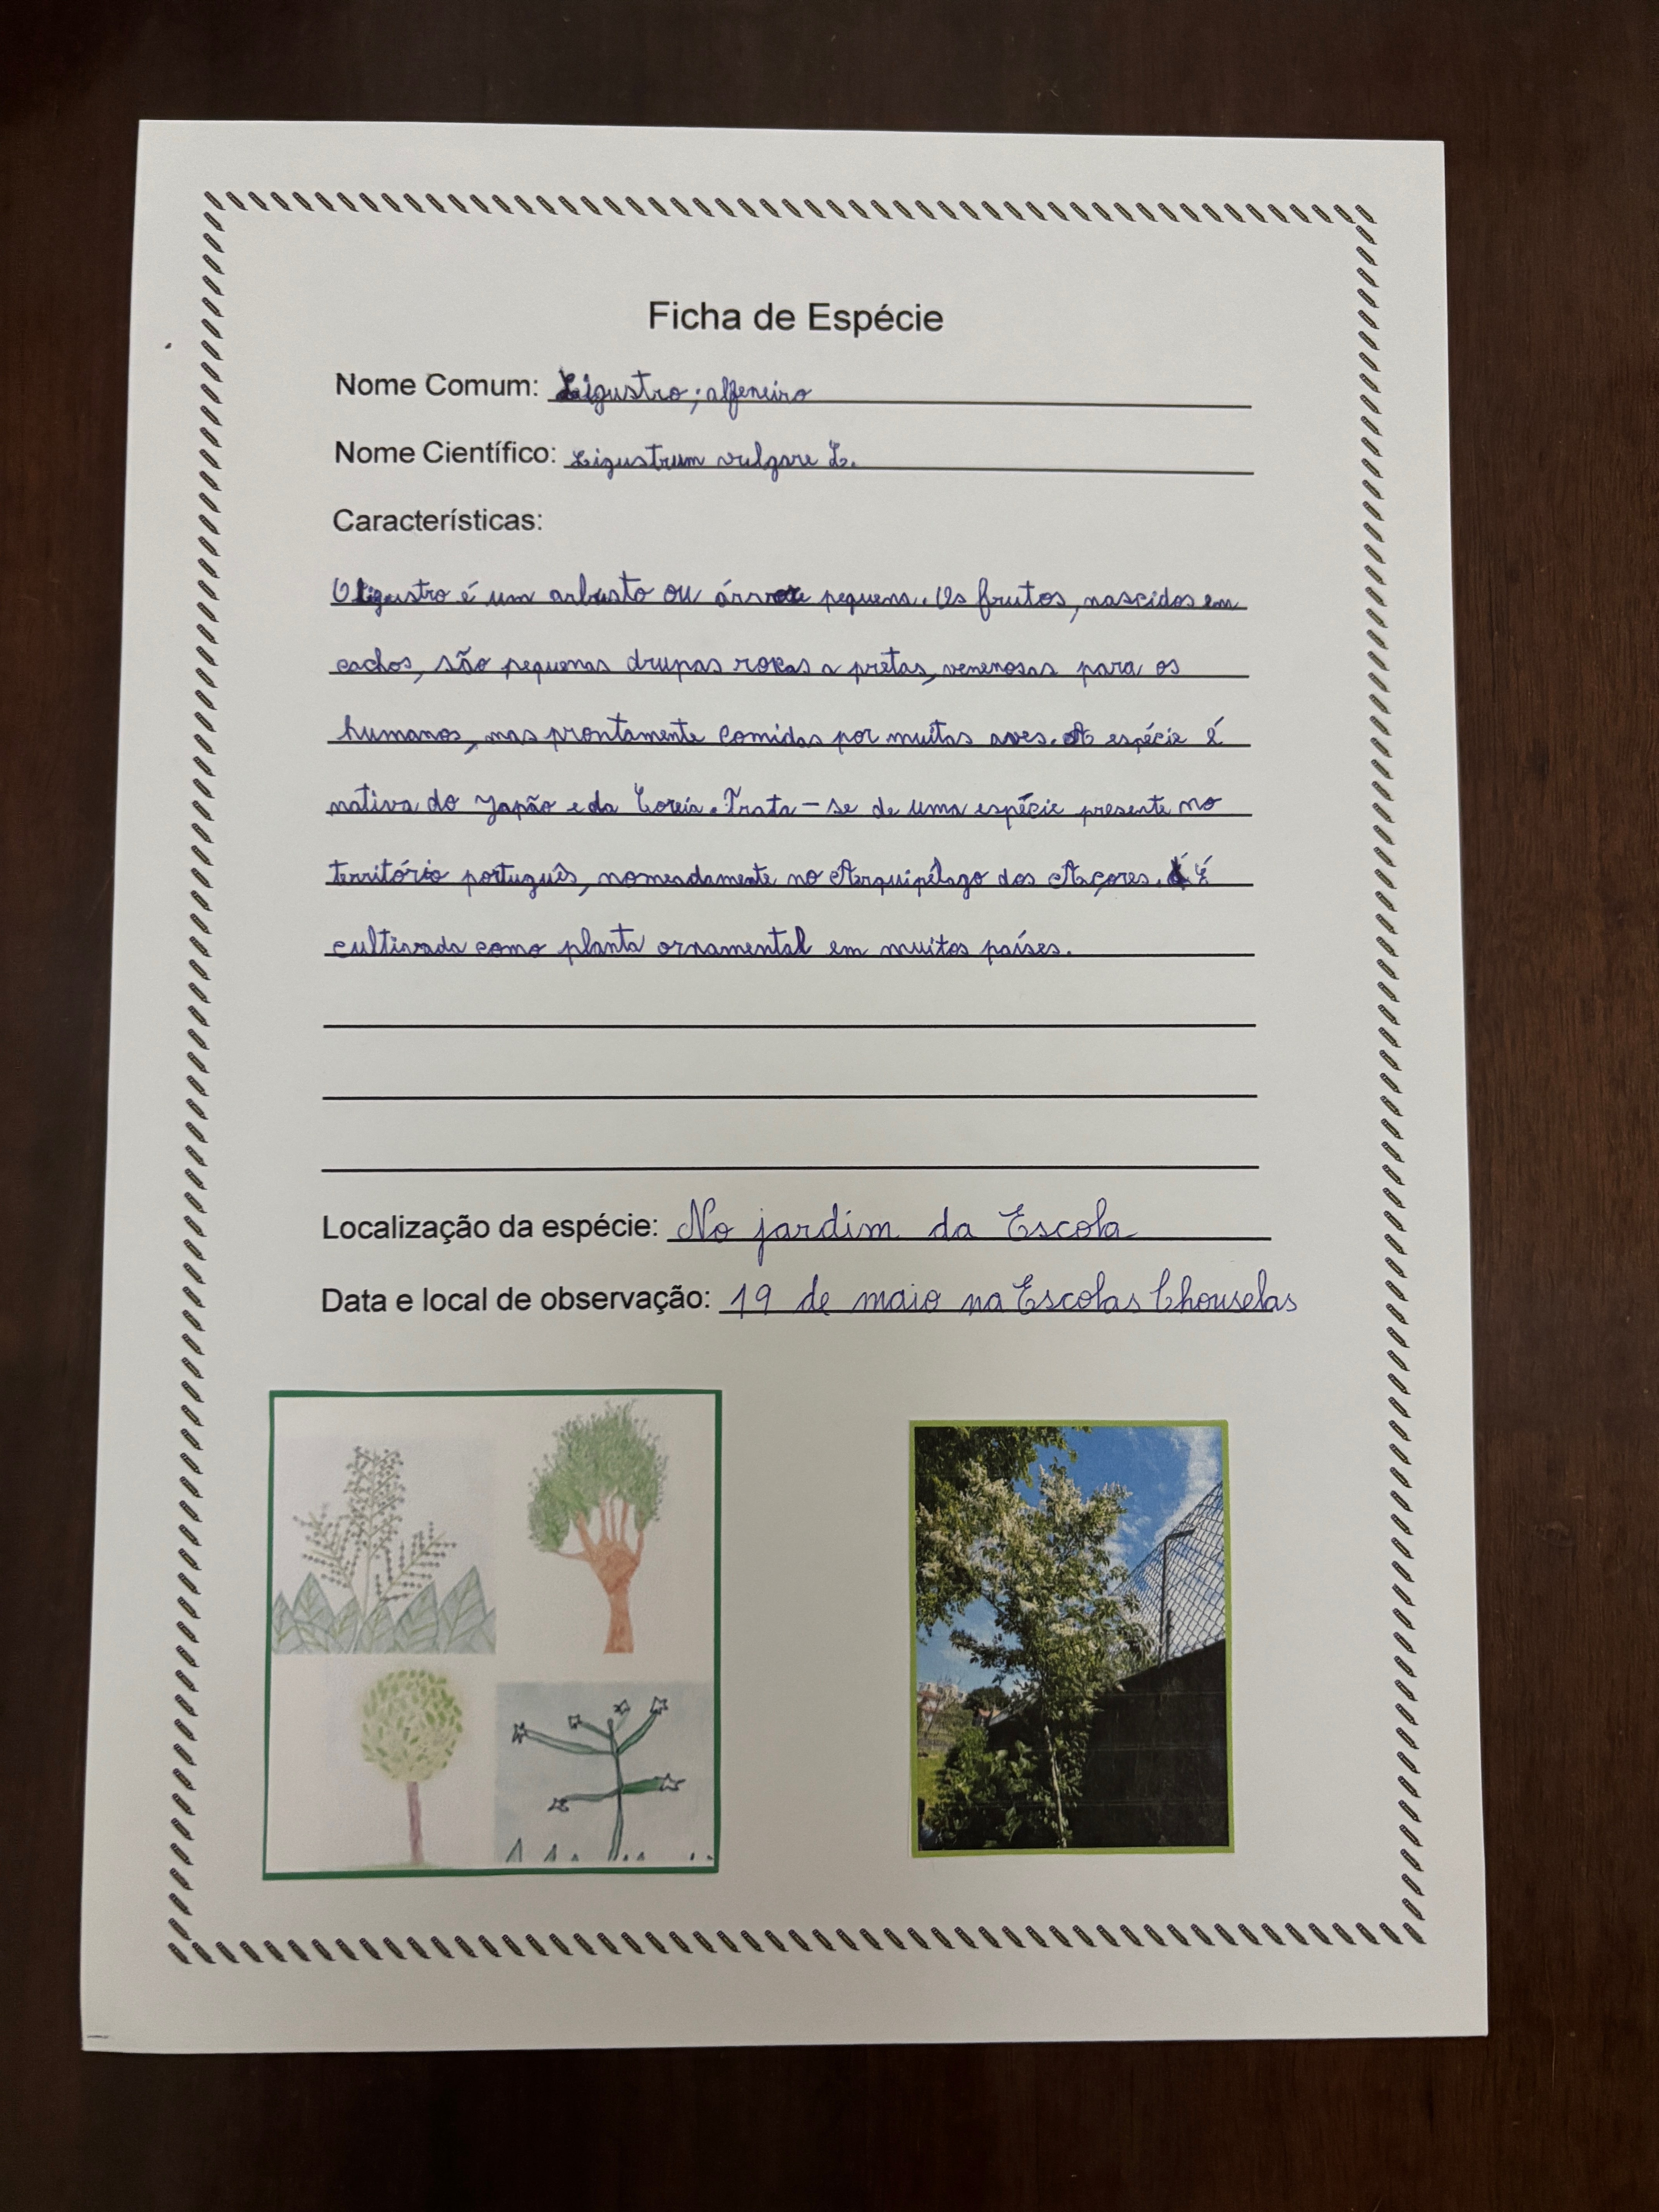 Ficha de Espécie
Nome Comum: Ligustro; alfeneiro
Nome Científico: Ligustrum vulgare L.
Características:
O ligustro é um arbusto ou árvore pequena. Os frutos, nascidos em
cachos, são pequenas drupas roxas a pretas, venenosas para os
humanos, mas prontamente comidas por muitas aves. A espécie é
nativa do Japão e da Coreia. Trata-se de uma espécie presente no
território português, nomeadamente no Arquipélago dos Açores. É
cultivada como planta ornamental em muitos países.
Localização da espécie: No jardim da Escola
Data e local de observação: 19 de maio na Escolas Chouselas